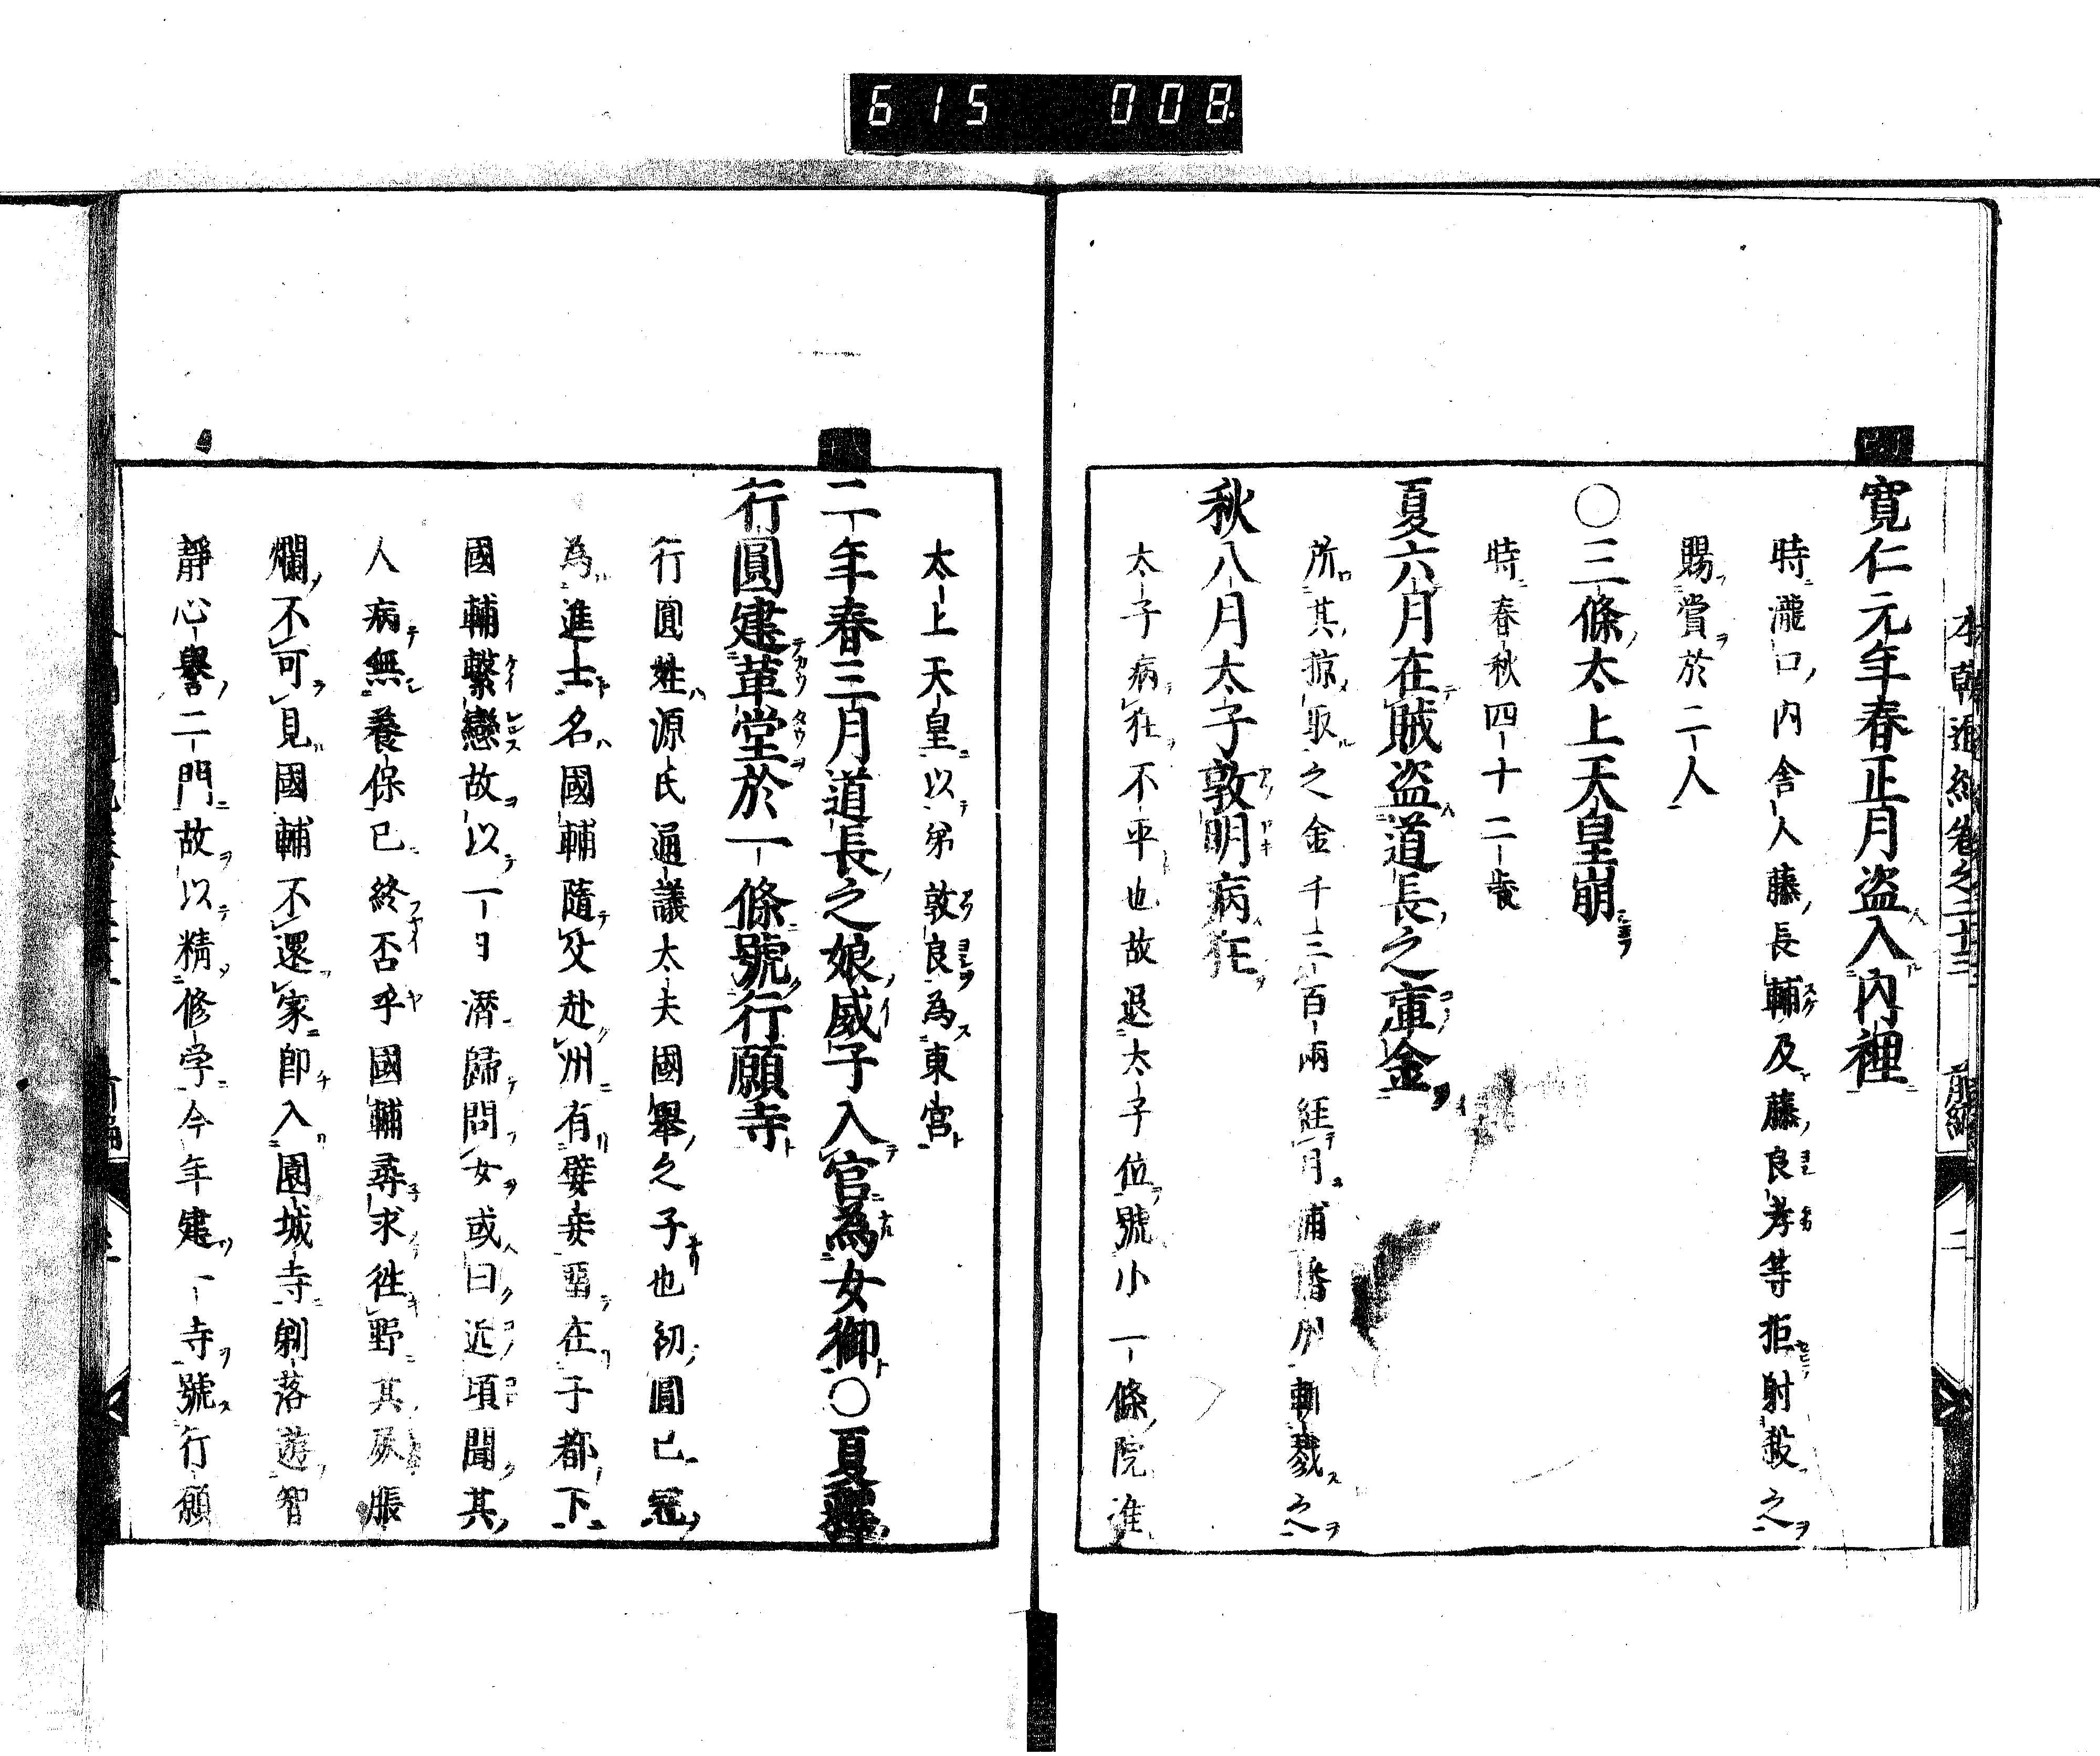 615 008
本朝通紀卷之二十三 前編 二
寛仁元年春正月盗入內裡
時瀧口內舎人藤長輔及藤良孝等拒射殺之
賜賞於二人
○三條太上天皇崩
時春秋四十二歳
夏六月在賊盗道長之庫金
所其掠取之金千三百兩経月捕 州斬戮之
秋八月太子敦明病狂
太子病狂不平也故退太子位號小一條院準
太上天皇以弟敦良為東宮
二年春三月道長之娘威子入官為女御○夏釋
行圓建革堂於一條號行願寺
行圓姓源氏通議太夫國舉之子也初圓已冠
為進士名國輔隨父赴州有嬖妾畱在于都下
國輔繫戀故以一日潛歸問女或曰近項聞其
人病無養保已終否乎國輔尋求徃野其尿脹
爛不可見國輔不還家即入園城寺剃落遊智
靜心譽二門故以精修学今年建一寺號行願